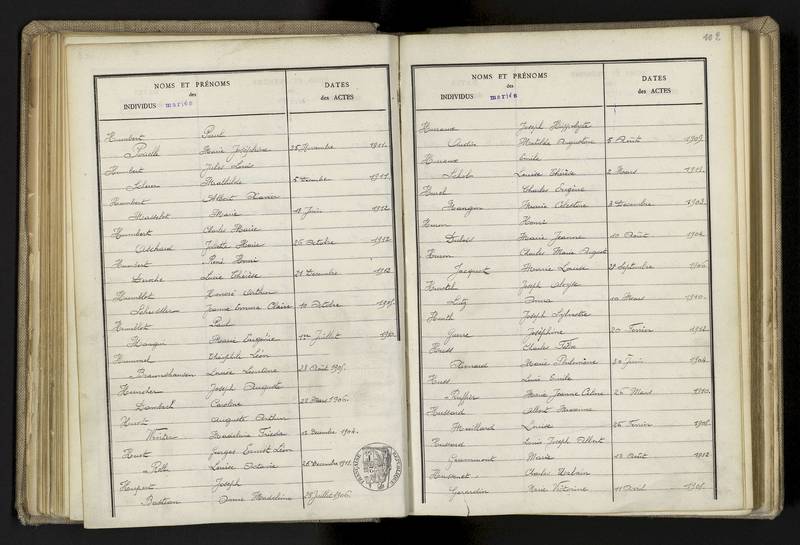 NOMS ET PRÉNOMS
des
INDIVIDUS mariés
DATES
des ACTES
Humbert Paul
Marie Joséphine 25 Novembre 1911.
Humbert Jules Louis
Mathilde 5 Décembre 1911.
Humbert Albert Xavier
Masselot Marie 18 Juin 1912
Humbert Charles Marie
Aschard Juliette Marie 26 Octobre 1912
Humbert René Henri
Louise Thérèse 21 Décembre 1912
Humblot Honoré Arthur
Schindler Jeanne Emma Claire 10 Octobre
Humblot Paul
Mangin Marie Eugénie 1er Juillet
Hummel Théophile Léon
Braunshausen Louise 28 Août
Hunsher Joseph Auguste
Dambach Caroline 28 Mars 1906.
Hurst Auguste Arthur
Winter Madeleine Frieda 12 Décembre 1904.
Hurst Georges Ernest Léon
Louise Octavie 26 Décembre 1911.
Huspert Joseph
Bastian Anne Madeleine 28 Juillet 1906.
102
NOMS ET PRÉNOMS
des
INDIVIDUS mariés
DATES
des ACTES
Huraux Joseph Hippolyte
Austin Mathilde Augustine 5 Août 1909.
Huraux Emile
Louise Thérèse 2 Mars 1911.
Hurel Charles Eugène
Mangin Marie Célestine 3 Décembre 1903.
Huron Henri
Dubois Marie Jeanne 10 Août 1904.
Huron Charles Marie August
Jacquot Marie Louise 28 Septembre 1906.
Joseph Aloyse
Lutz Anna 10 Mars 1910.
Hurth Joseph Sylvestre
Joséphine 20 Février 1912
Charles Félix
Renard Marie Philomène 30 Juin 1904.
Huss Louis Emile
Ruffier Marie Jeanne Céline 26 Mars 1910.
Hussard Albert
Maillard Louise 26 Février
Hussard Louis Joseph Albert
Grammont Marie 13 Août 1912
Hussenet Charles Urbain
Gerardin Marie Victorine 11 Avril